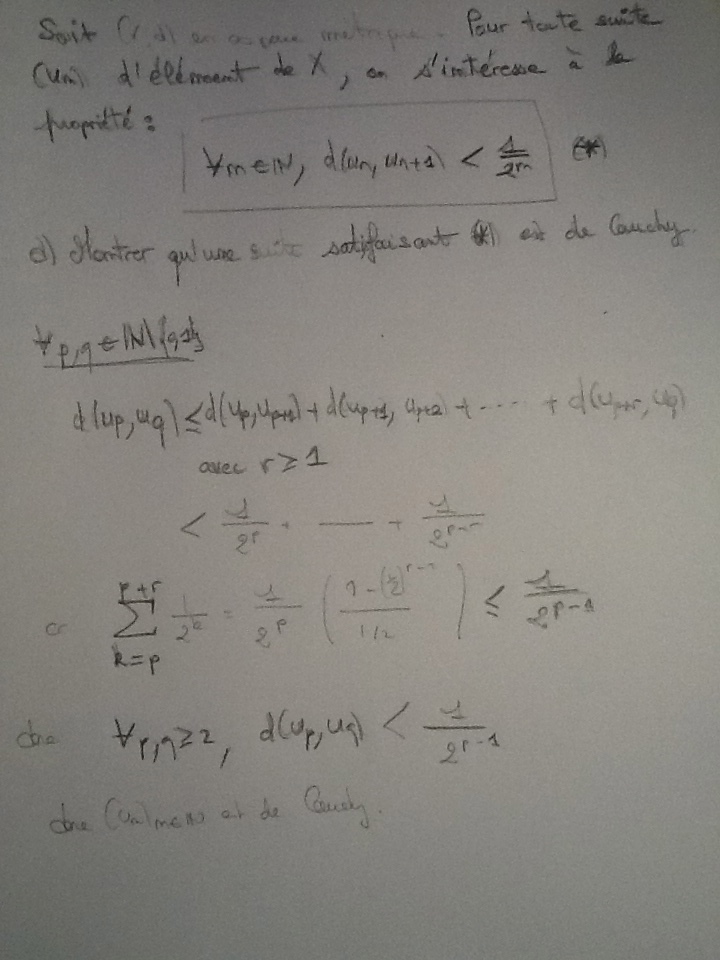 Soit (X, d) un espace métrique. Pour toute suite
(un) d'élément de X, on s'intéresse à la
propriété :
∀n∈ℕ, d(un, un+1) < 1/2^n (*)
d) Montrer qu'une suite satisfaisant (*) est de Cauchy.
∀p,q ∈ ℕ\{0,1}
d(up, uq) ≤ d(up, up+1) + d(up+1, up+2) + ---- + d(up+r, uq)
avec r ≥ 1
< 1/2^p + —— + 1/2^
∑_{k=p}^{p+r} 1/2^k = 1/2^p ( (1-(1/2)) / 1/2 ) ≤ 1/2^{p-1}
donc ∀p,q≥2, d(up, uq) < 1/2^{p-1}
donc (un)n∈ℕ est de Cauchy.